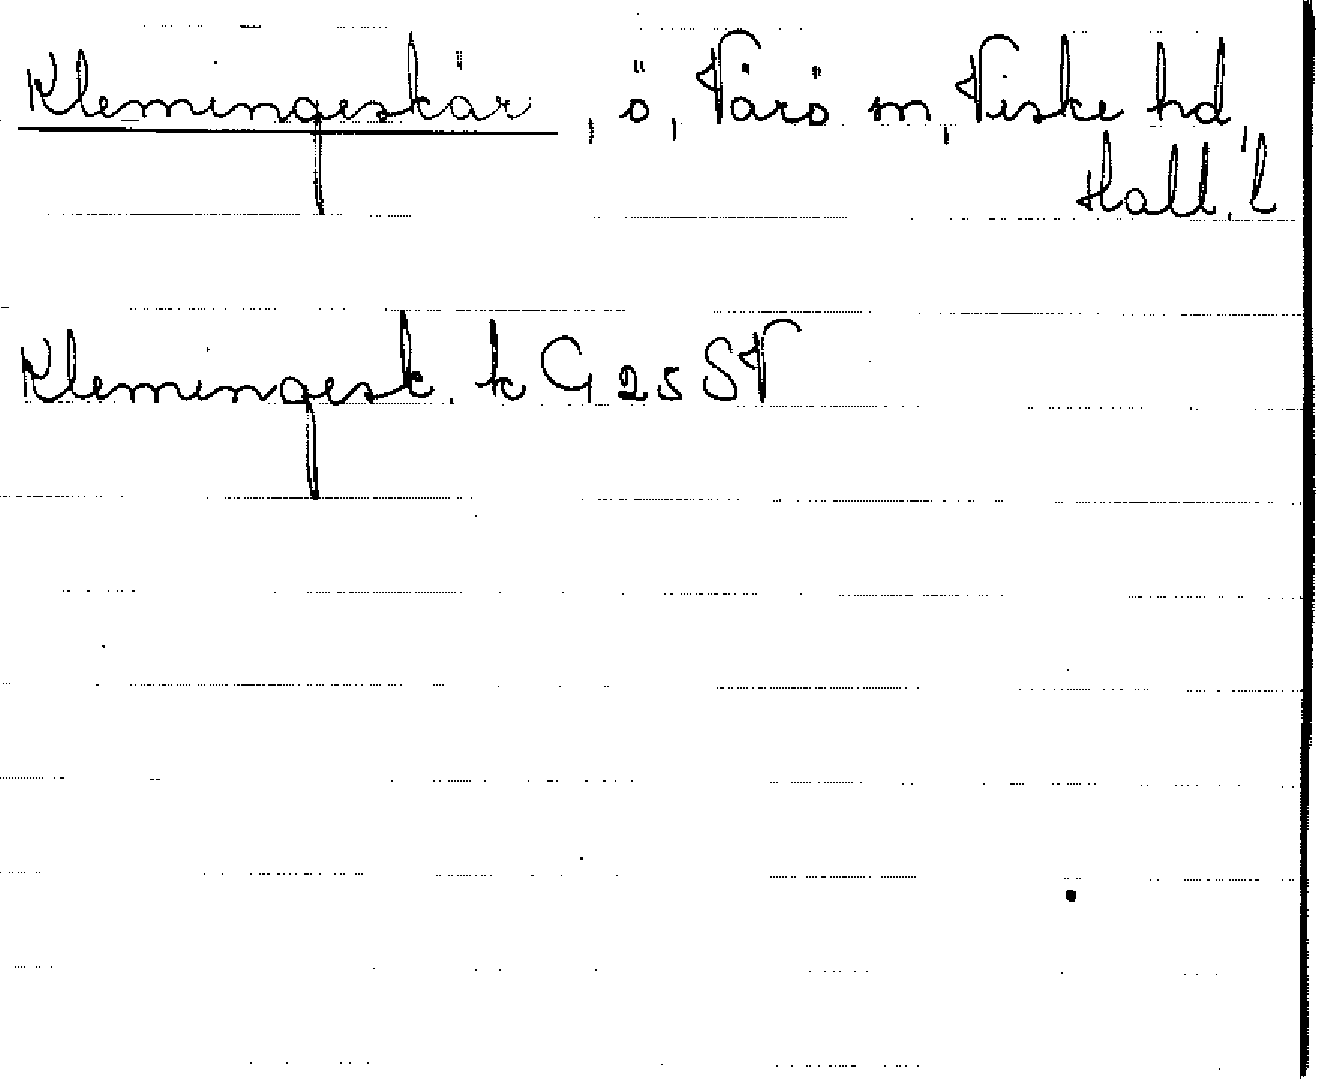 Klemingeskär, ö, Värö sn, Viske hd,
Hall. l
Klemingesk. k G 25 SV